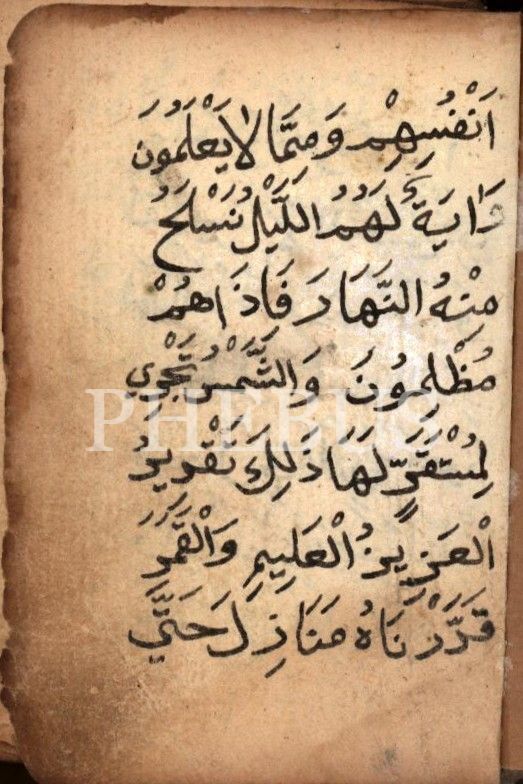 اَنْفُسِهِمْ وَمِمَّا لَا يَعْلَمُونَ
وَاٰيَةٌ لَهُمُ اللَّيْلُ نَسْلَخُ
مِنْهُ النَّهَارَ فَاِذَا هُمْ
مُظْلِمُونَ وَالشَّمْسُ تَجْرِي
PHEBUS
لِمُسْتَقَرٍّ لَهَا ذَلِكَ تَقْدِيرُ
الْعَزِيزِ الْعَلِيمِ وَالْقَمَرَ
قَدَّرْنَاهُ مَنَازِلَ حَتَّي